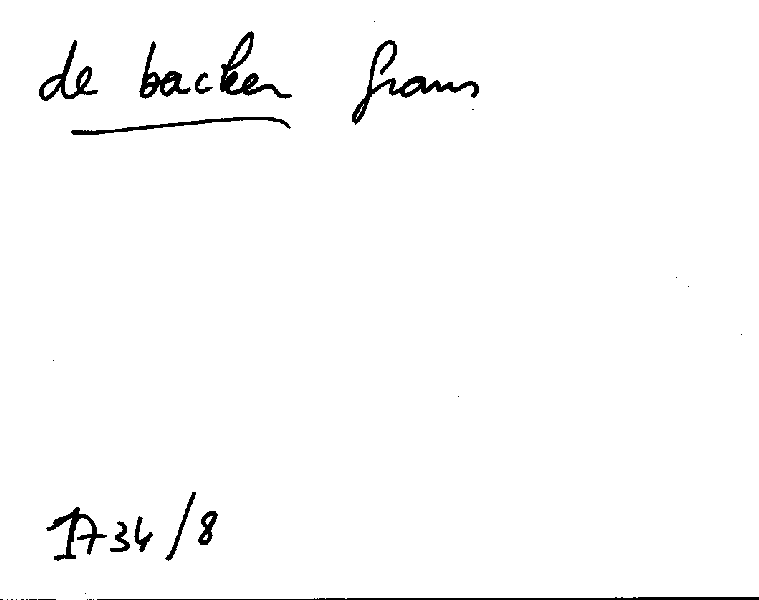 de backer frans
1734/8